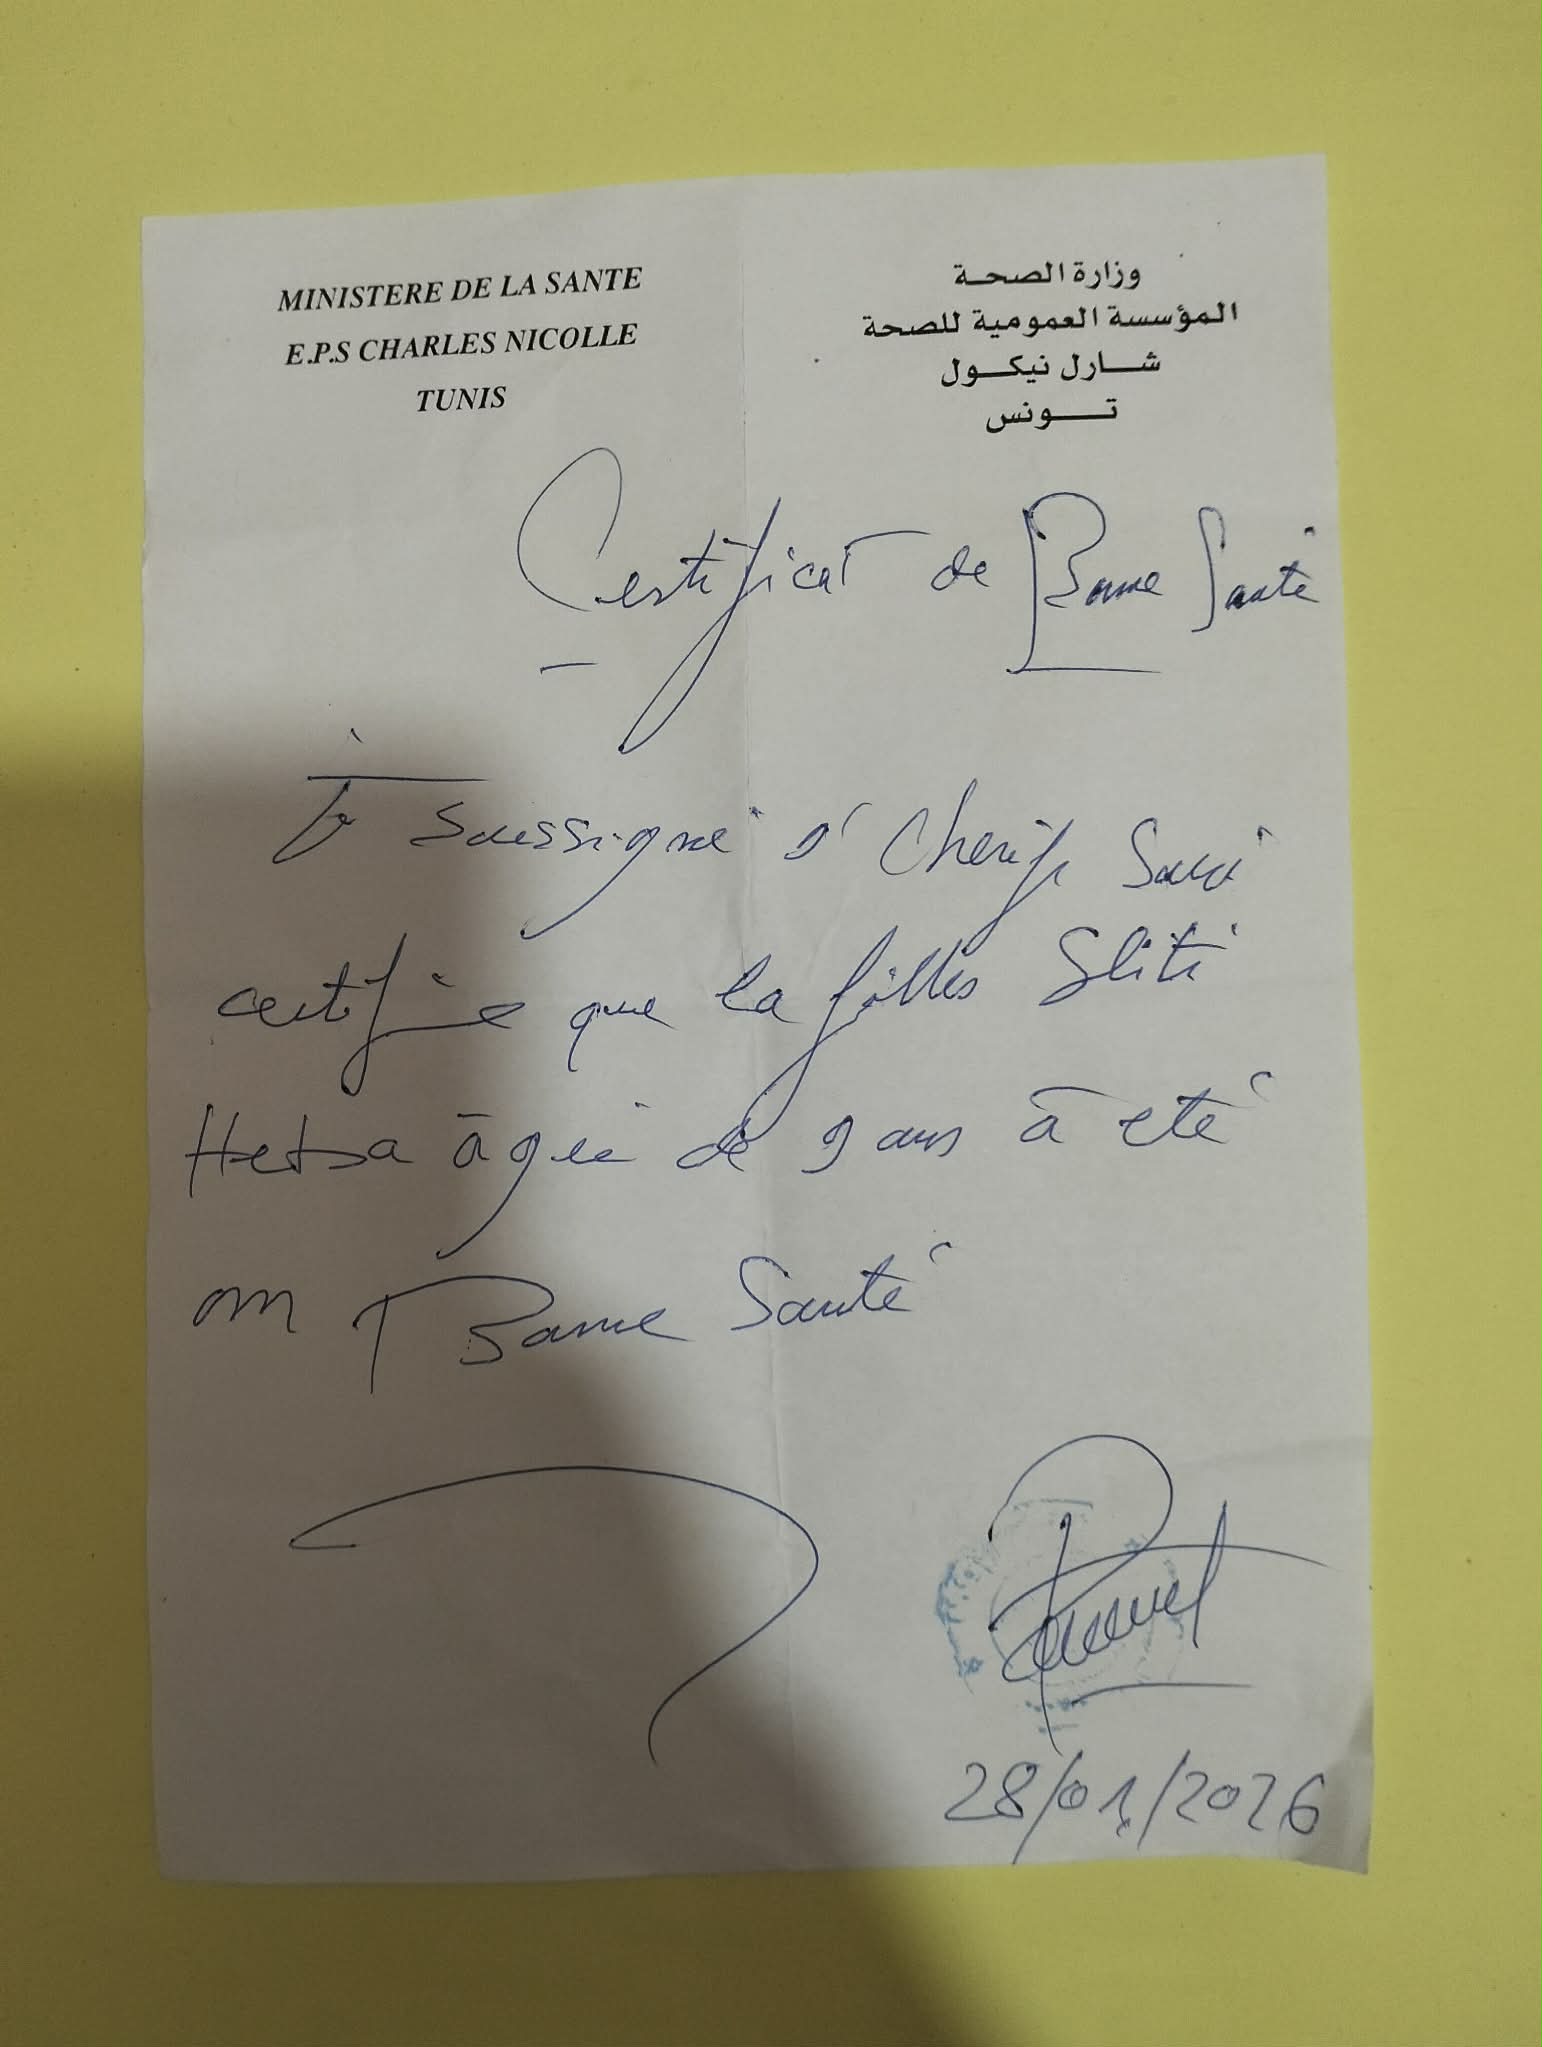 MINISTERE DE LA SANTE
E.P.S CHARLES NICOLLE
TUNIS
وزارة الصحة
المؤسسة العمومية للصحة
شارل نيكول
تونس
Certificat de Bonne Santé
Je soussigné d' Cherif
certifie que la filles Sliti
âgée de 9 ans à eté
en Bonne Santé
28/01/2026